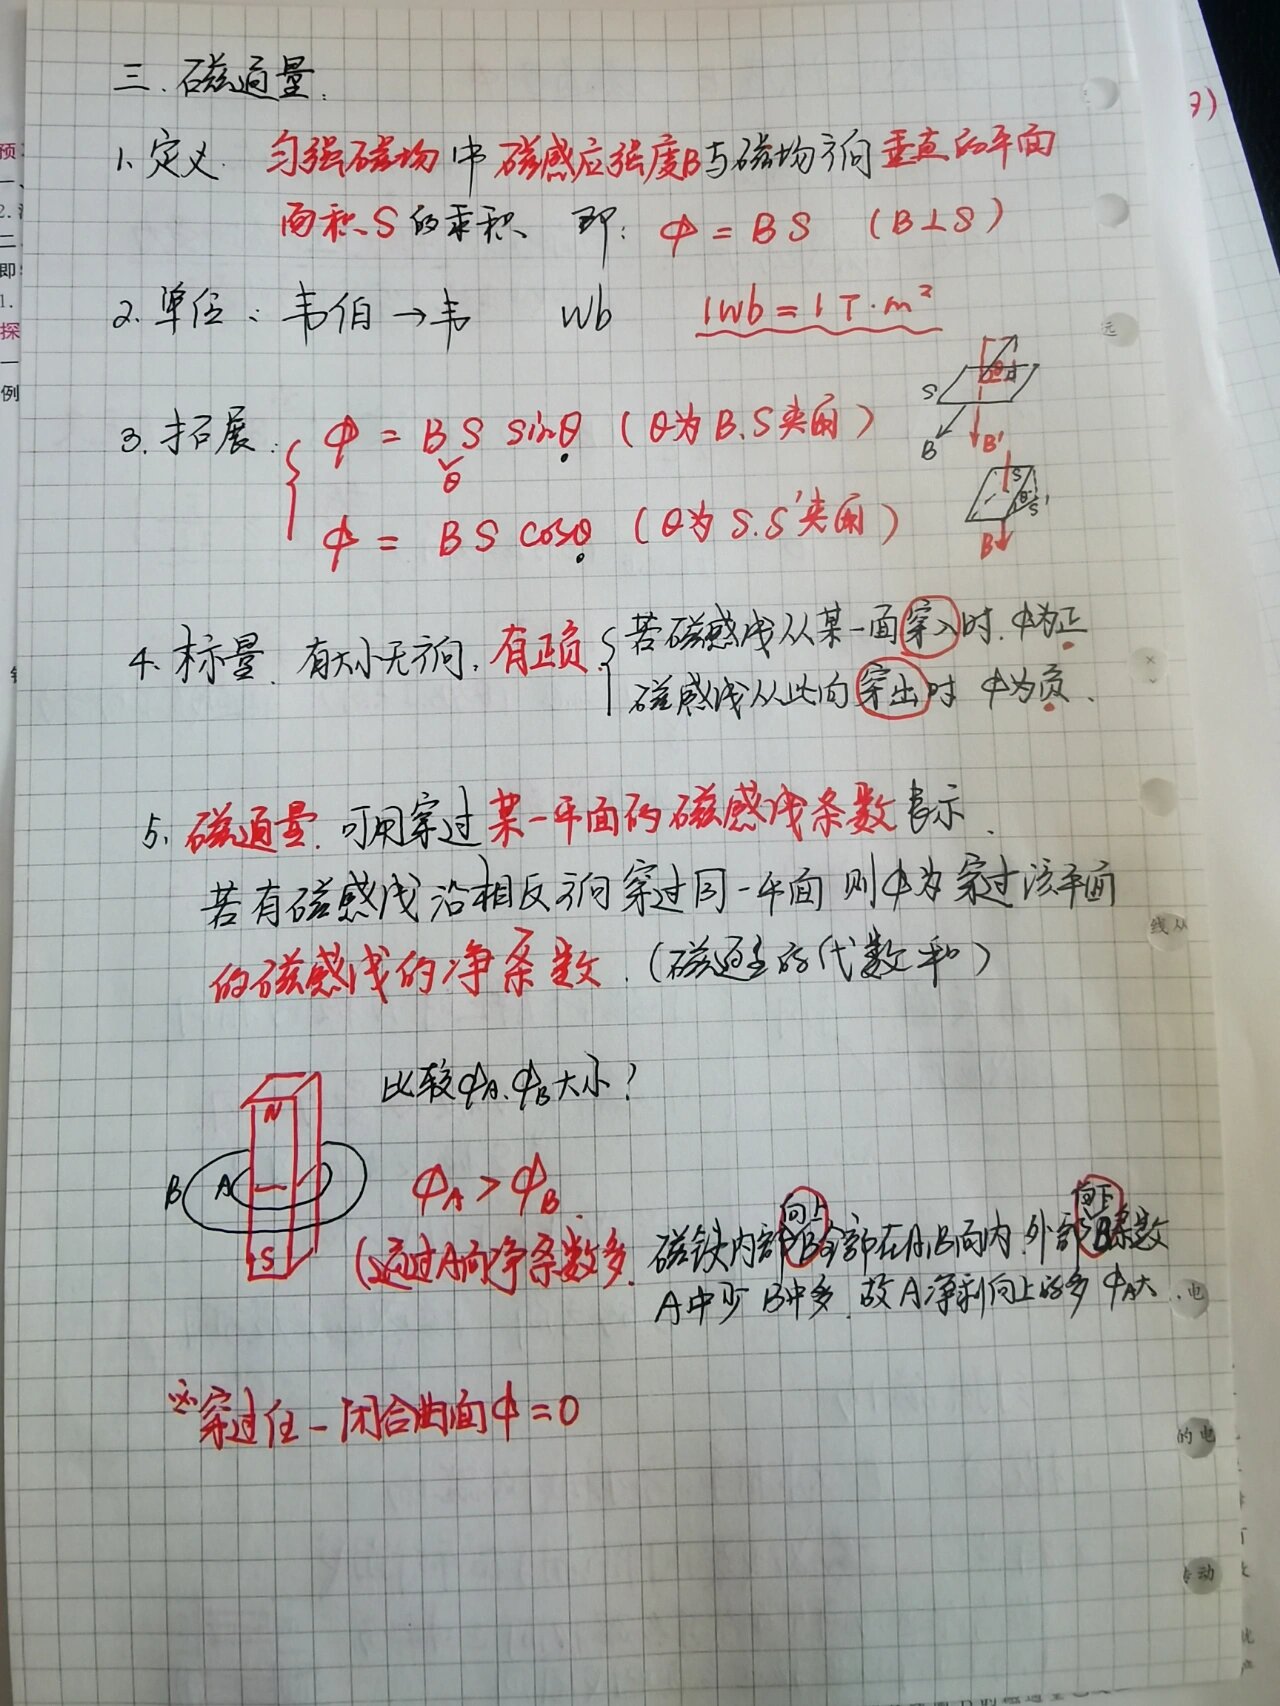 三.磁通量.
1.定义. 匀强磁场中磁感应强度B与磁场方向垂直的平面
面积S的乘积 即: φ = BS (B⊥S)
2.单位: 韦伯→韦 Wb 1Wb = 1T·m²
3.拓展: φ = BS sinθ (θ为B.S夹角)
θ
φ = BS cosθ (θ为S.S'夹角)
S
B
B'
S
θ
S'
B
4.标量. 有大小无方向. 有正负. 若磁感线从某一面穿入时.φ为正
磁感线从此面穿出时 φ为负.
5.磁通量.可用穿过某一平面的磁感线条数表示.
若有磁感线沿相反方向穿过同一平面 则φ为穿过该平面
的磁感线的净条数.(磁通量的代数和)
比较φA.φB大小?
N
B A
S
φA > φB.
(通过A向净条数多.
向上 向下
磁铁内部B全部在A,B面内.外部B条数
A中少 B中多.故A净剩向上的多 φA大.
※穿过任一闭合曲面φ=0
7)
预
2.
二
即
1.
探
一
例
远
线从
电
的电
动